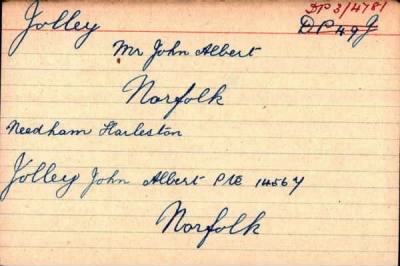 DP 3/4781
Jolley DP 49 J
Mr John Albert
Norfolk
Needham Harleston
Jolley John Albert Pte 14567
Norfolk